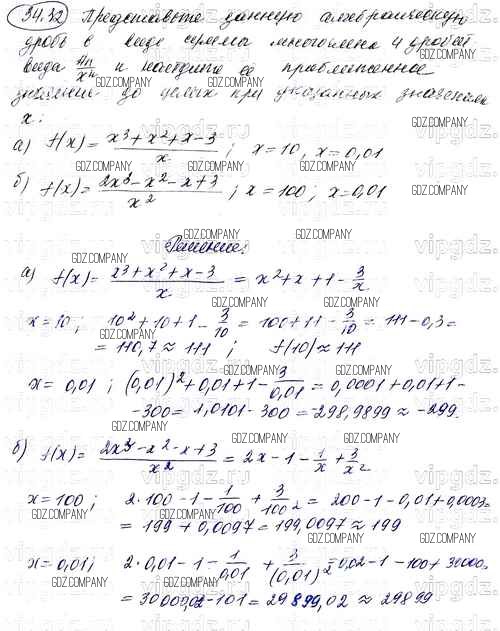 34.32 Представьте данную алгебраическую
дробь в виде суммы многочлена и дробей
вида An/x^n и найдите её приближенное
значение до целых при указанных значениях
x:
а) f(x) = (x³+x²+x-3)/x ; x=10, x=0,01
б) f(x) = (2x³-x²-x+3)/x² ; x=100; x=0,01
Решение:
а) f(x) = (x³+x²+x-3)/x = x²+x+1-3/x
x=10; 10²+10+1-3/10 = 100+11-3/10 = 111-0,3=
= 110,7 ≈ 111 ; f(10) ≈ 111
x = 0,01 ; (0,01)²+0,01+1-3/0,01 = 0,0001+0,01+1-
-300 = 1,0101-300 = -298,9899 ≈ -299.
б) f(x) = (2x³-x²-x+3)/x² = 2x-1-1/x+3/x²
x=100; 2·100-1-1/100+3/100² = 200-1-0,01+0,0003=
= 199+0,0097 = 199,0097 ≈ 199
x=0,01; 2·0,01-1-1/0,01+3/(0,01)² = 0,02-1-100+30000=
= 30000,02-101 = 29899,02 ≈ 29899
GDZ.COMPANY
vipgdz.ru